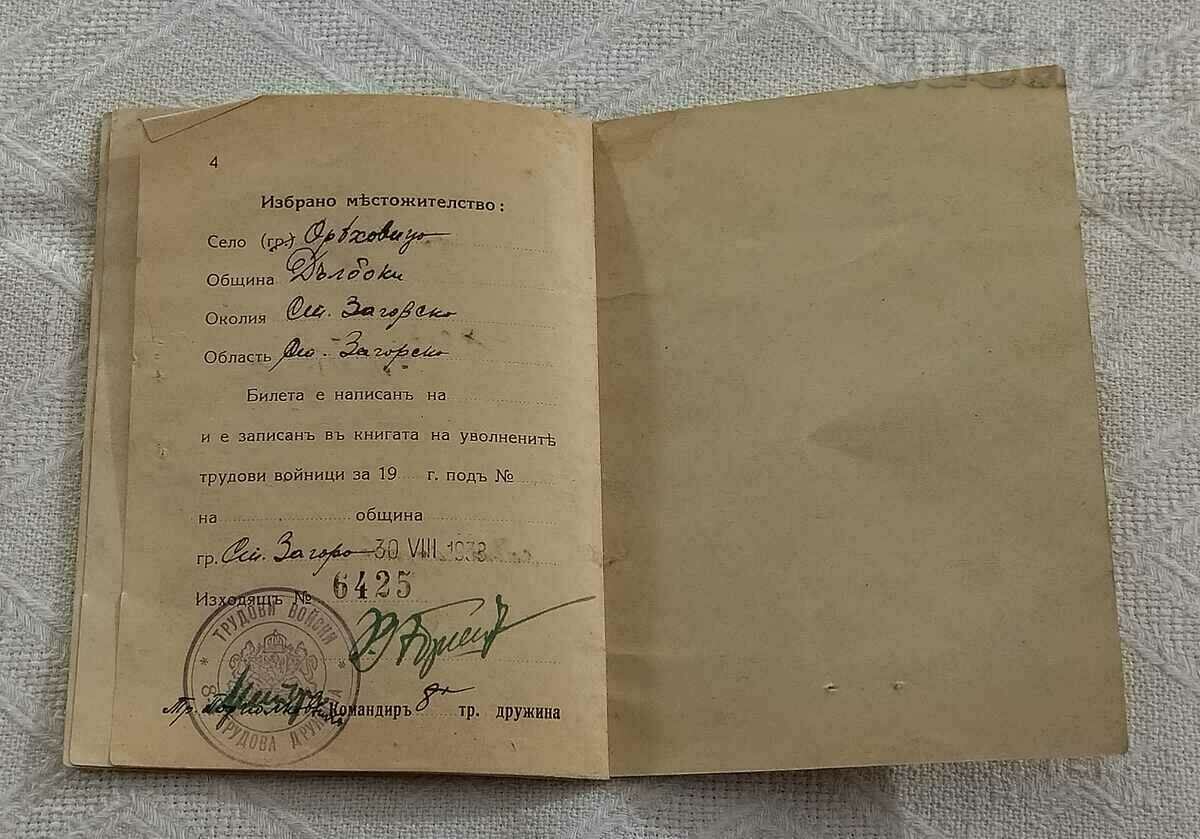 4
Избрано мѣстожителство:
Село (гр.) Орѣховица
Община Дълбоки
Околия Ст. Загорско
Область Ст. Загорско
Билета е написанъ на
и е записанъ въ книгата на уволненитѣ
трудови войници за 19 г. подъ №
на община
гр. Ст. Загора 30 VIII 1938
Изходящъ № 6425
ТРУДОВИ ВОЙСКИ
* 8 ТРУДОВА ДРУЖИНА *
Командиръ 8 тр. дружина